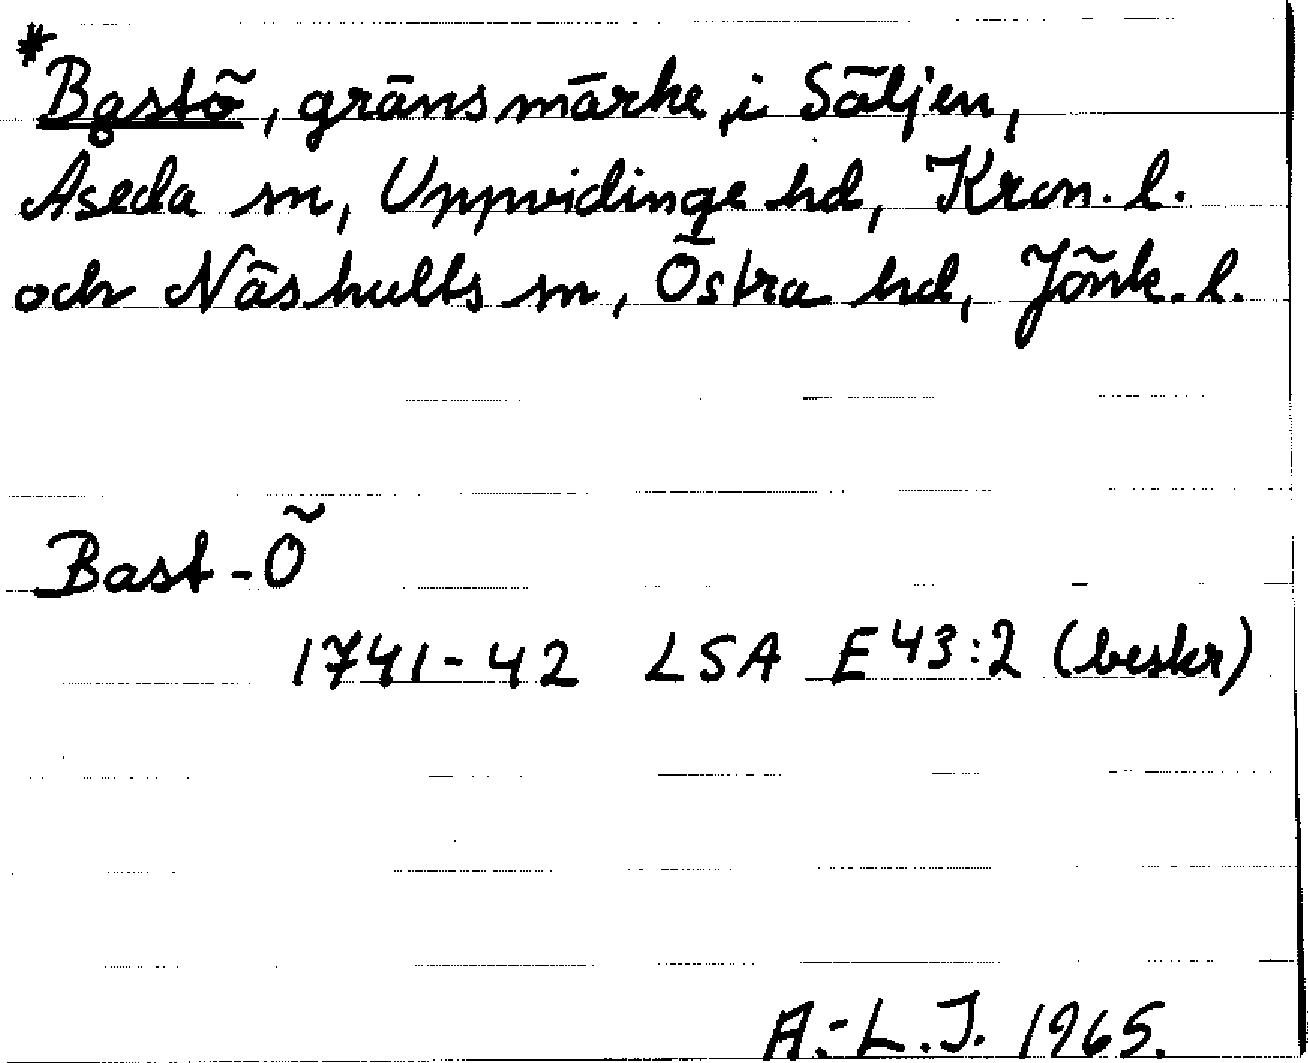 *Bastö, gränsmärke, i Säljen,
Aseda sn, Uppvidinge hd, Kron. l.
och Näshults sn, Östra hd, Jönk. l.
Bast-Ö
1741-42 LSA E 43:2 (beskr)
A.-L.J. 1965.